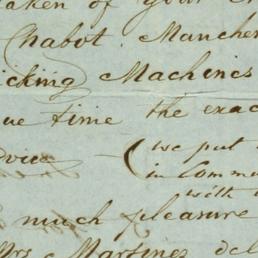 taken of your
Chabot. Manches
icking Machines
ue time the exac
dvice (we put
in Comm
with
much pleasure
Mrs Martinez del